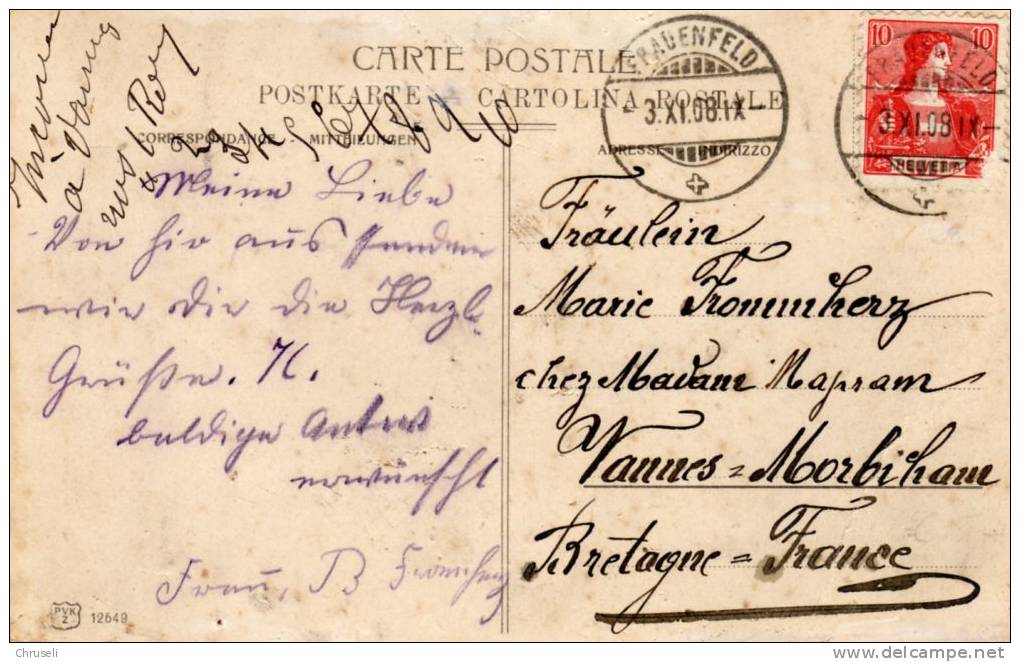 CARTE POSTALE
POSTKARTE – CARTOLINA POSTALE
CORRESPONDANCE - MITTEILUNGEN
ADRESSE - INDIRIZZO
FRAUENFELD
3.XI.08.IX
FRAUENFELD
3.XI.08 IX
10 10
HELVETIA
Meine Liebe
Von hir aus senden
wir Dir die Herzl.
Grüße. K.
baldige Antw
erwünscht
Frau, B Frommherz
Fräulein
Marie Frommherz
chez Madam Mapram
Vannes = Morbiham
Bretagne = France
PVK
Z
12649
Chruseli
www.delcampe.net